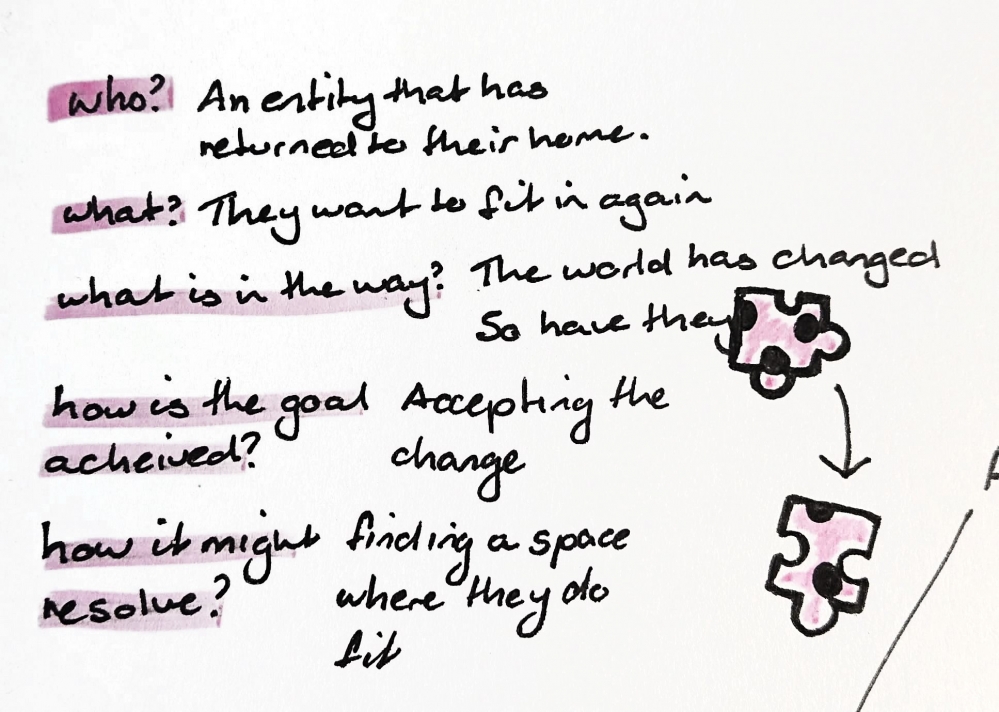 who? An entity that has
returned to their home.
what? They want to fit in again
what is in the way? The world has changed
So have they
how is the goal Accepting the
acheived? change
how it might finding a space
resolve? where they do
fit